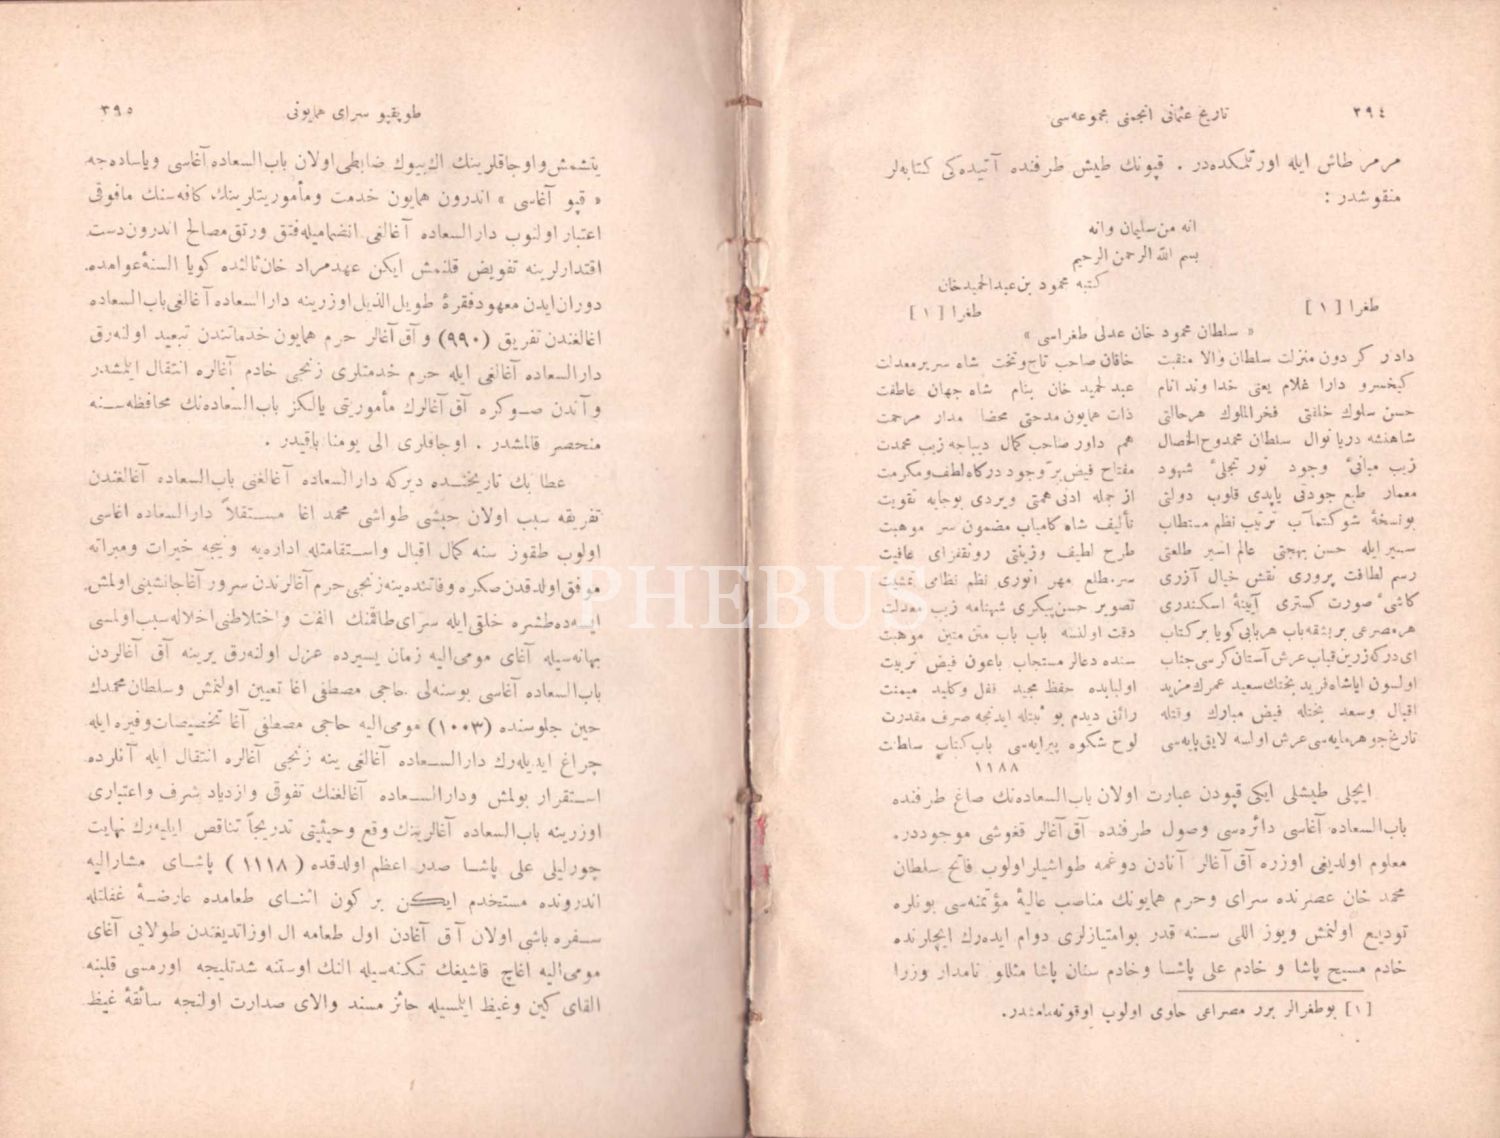 ٣٩٤
تاریخ عثمانی انجمنی مجموعه‌سی
مرمر طاش ایله اورتلمکده‌در . قپونك طیش طرفنده آتیده‌کی کتابه‌لر
منقوشدر :
انه من سلیمان وانه
بسم الله الرحمن الرحیم
کتبه محمود بن عبدالحمید خان
طغرا [ ١ ] طغرا [ ١ ]
« سلطان محمود خان عدلی طغراسی »
دادار کردون منزلت سلطان والا منقبت خاقان صاحب تاج وتخت شاه سریر معدلت
کیخسرو دارا غلام یعنی خداوند انام عبدالحمید خان بنام شاه جهان عاطفت
حسن سلوك خلفتی فخرالملوك هر حالتی ذات همایون مدحتی محضا مدار مرحمت
شاهنشه دریا نوال سلطان ممدوح الخصال هم داور صاحب کمال دیباجه زیب محمدت
زیب مبانئ وجود نور تجلئ شهود مفتاح فیض بر وجود درکاه لطف ومکرمت
معمار طبع جودتی یاپدی قلوب دولتی از جمله ادنی همتی ویردی بوجایه تقویت
بونسخهٔ شوکتمآب ترتیب نظم مستطاب تألیف شاه کامیاب مضمون سر موهبت
سیر ایله حسن بهجتی عالم اسیر طلعتی طرح لطیف وزینتی رونقفزای عافیت
رسم لطافت پروری نقش خیال آزری سرمطلع مهر انوری نظم نظامی
کاشئ صورت کستری آیینهٔ اسکندری تصویر حسن پیکری شهنامه زیب معدلت
هر مصرعی بر بشقه باب هر بابی کویا بر کتاب دقت اولنسه باب باب متن متین موهبت
ای درکه زرین قباب عرش آستان کرسی جناب سنده دعالر مستجاب باعون فیض تربیت
اولسون ایا شاه فرید بختك سعید عمرك مزید اولبابده حفظ مجید قفل وکلید میمنت
اقبال وسعد بختله فیض مبارك وقتله رائق دیدم بو بیتله ایدنجه صرف مقدرت
تاریخ جوهر مایه‌سی عرش اولسه لایق پایه‌سی لوح شکوه پیرایه‌سی باب کتاب سلطنت
١١٨٨
ایچلی طیشلی ایکی قپودن عبارت اولان باب السعاده‌نك صاغ طرفنده
باب السعاده آغاسی دائره‌سی وصول طرفنده آق آغالر قغوشی موجوددر.
معلوم اولدیغی اوزره آق آغالر آنادن دوغمه طواشیلر اولوب فاتح سلطان
محمد خان عصرنده سرای وحرم همایونك مناصب عالیهٔ مؤتمنه‌سی بونلره
تودیع اولنمش ویوز اللی سنه قدر بوامتیازلری دوام ایده‌رك ایچلرنده
خادم مسیح پاشا و خادم علی پاشا وخادم سنان پاشا مثللو نامدار وزرا
[١] بوطغرالر برر مصراعی حاوی اولوب اوقونه‌مامشدر.
طوپقپو سرای همایونی
٣٩٥
یتشمش واوجاقلرینك اك بیوك ضابطی اولان باب السعاده آغاسی ویا ساده‌جه
« قپو آغاسی » اندرون همایون خدمت ومأموریتلرینك کافه‌سنك مافوقی
اعتبار اولنوب دارالسعاده آغالغی انضمامیله فتق ورتق مصالح اندرون دست
اقتدارلرینه تفویض قلنمش ایکن عهد مراد خان ثالثده کویا السنهٔ عوامده
دوران ایدن معهود فقرهٔ طویل الذیل اوزرینه دارالسعاده آغالغی باب السعاده
اغالغندن تفریق (٩٩٠) و آق آغالر حرم همایون خدماتندن تبعید اولنه‌رق
دارالسعاده آغالغی ایله حرم خدمتلری زنجی خادم آغالره انتقال ایلمشدر
و آندن صوکره آق آغالرك مأموریتی یالکز باب السعاده‌نك محافظه‌سنه
منحصر قالمشدر . اوجاقلری الی یومنا باقیدر .
عطا بك تاریخنده دیرکه دارالسعاده آغالغنی باب السعاده آغالغندن
تفریقه سبب اولان حبشی طواشی محمد اغا مستقلاً دارالسعاده اغاسی
اولوب طقوز سنه کمال اقبال واستقامتله اداره‌یه ونیجه خیرات ومبراته
موفق اولدقدن صکره وفاتنده ینه زنجی حرم آغالرندن سرور آغا جانشینی اولمش
ایسه‌ده طشره خلقی ایله سرای طاقمنك الفت و اختلاطنی اخلاله سبب اولمسی
بهانه‌سیله آغای مومی‌الیه زمان یسیرده عزل اولنه‌رق یرینه آق آغالردن
باب السعاده آغاسی بوسنه‌لی حاجی مصطفی اغا تعیین اولنمش وسلطان محمدك
حین جلوسنده (١٠٠٣) مومی‌الیه حاجی مصطفی آغا تخصیصات وفیره ایله
چراغ ایدیله‌رك دارالسعاده آغالغی ینه زنجی آغالره انتقال ایله آنلرده
استقرار بولمش ودارالسعاده آغالغنك تفوقی وازدیاد شرف واعتباری
اوزرینه باب السعاده آغالرینك وقع وحیثیتی تدریجاً تناقص ایلیه‌رك نهایت
چورلیلی علی پاشا صدر اعظم اولدقده (١١١٨) پاشای مشارالیه
اندرونده مستخدم ایکن بر کون اثنای طعامده عارضهٔ غفلتله
سفره باشی اولان آق آغادن اول طعامه ال اوزاتدیغندن طولایی آغای
مومی‌الیه اغاچ قاشیغك تکنه‌سیله النك اوستنه شدتلیجه اورمسی قلبنه
القای کین وغیظ ایلمسیله حائز مسند والای صدارت اولنجه سائقهٔ غیظ
PHEBUS